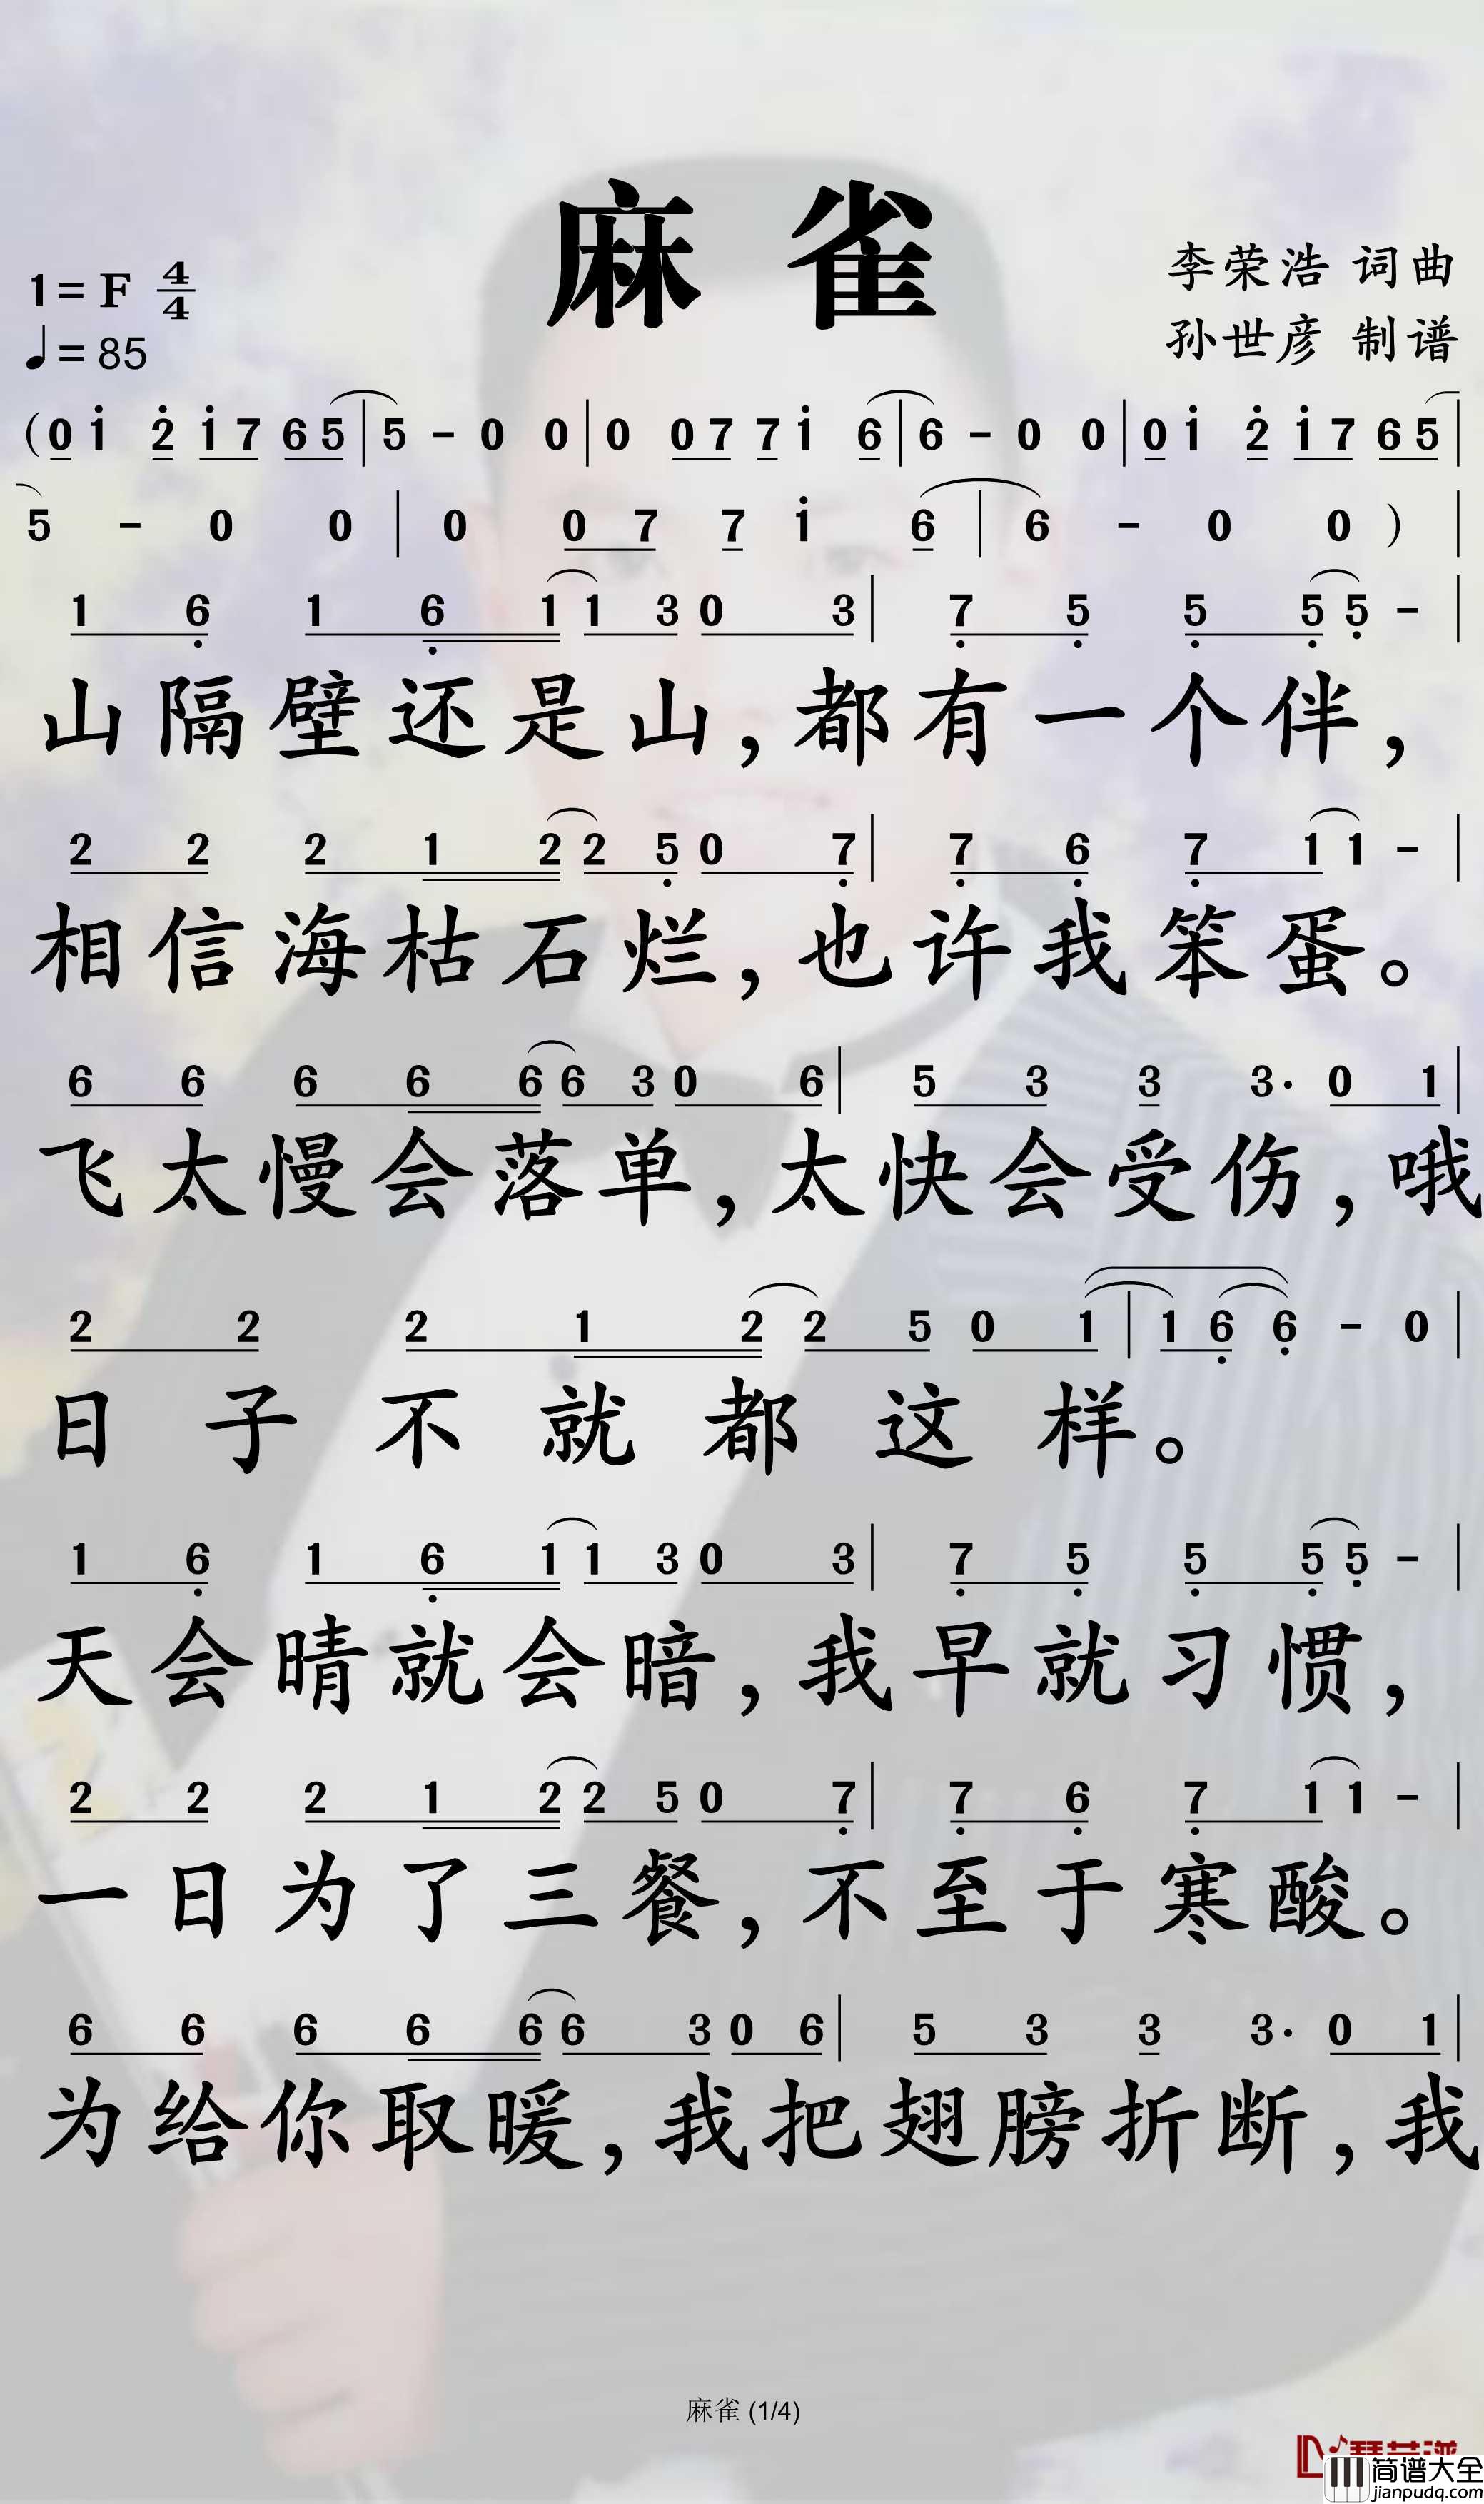 麻雀
1=F 4/4
李荣浩 词曲
♩=85
孙世彦 制谱
(0 1̇ 2̇ 1̇ 7 6 5 | 5 - 0 0 | 0 0 7 7 1̇ 6 | 6 - 0 0 | 0 1̇ 2̇ 1̇ 7 6 5 |
5 - 0 0 | 0 0 7 7 1̇ 6 | 6 - 0 0 ) |
1 6̣ 1 6̣ 1 1 3 0 3 | 7̣ 5̣ 5̣ 5̣ 5̣ - |
山隔壁还是山,都有一个伴,
2 2 2 1 2 2 5̣ 0 7̣ | 7̣ 6̣ 7̣ 1 1 - |
相信海枯石烂,也许我笨蛋。
6 6 6 6 6 6 3 0 6 | 5 3 3 3· 0 1 |
飞太慢会落单,太快会受伤,哦
2 2 2 1 2 2 5 0 1 | 1 6̣ 6̣ - 0 |
日子不就都这样。
1 6̣ 1 6̣ 1 1 3 0 3 | 7̣ 5̣ 5̣ 5̣ 5̣ - |
天会晴就会暗,我早就习惯,
2 2 2 1 2 2 5 0 7̣ | 7̣ 6̣ 7̣ 1 1 - |
一日为了三餐,不至于寒酸。
6 6 6 6 6 6 3 0 6 | 5 3 3 3· 0 1 |
为给你取暖,我把翅膀折断,我
麻雀 (1/4)
简谱大全
jianpudq.com